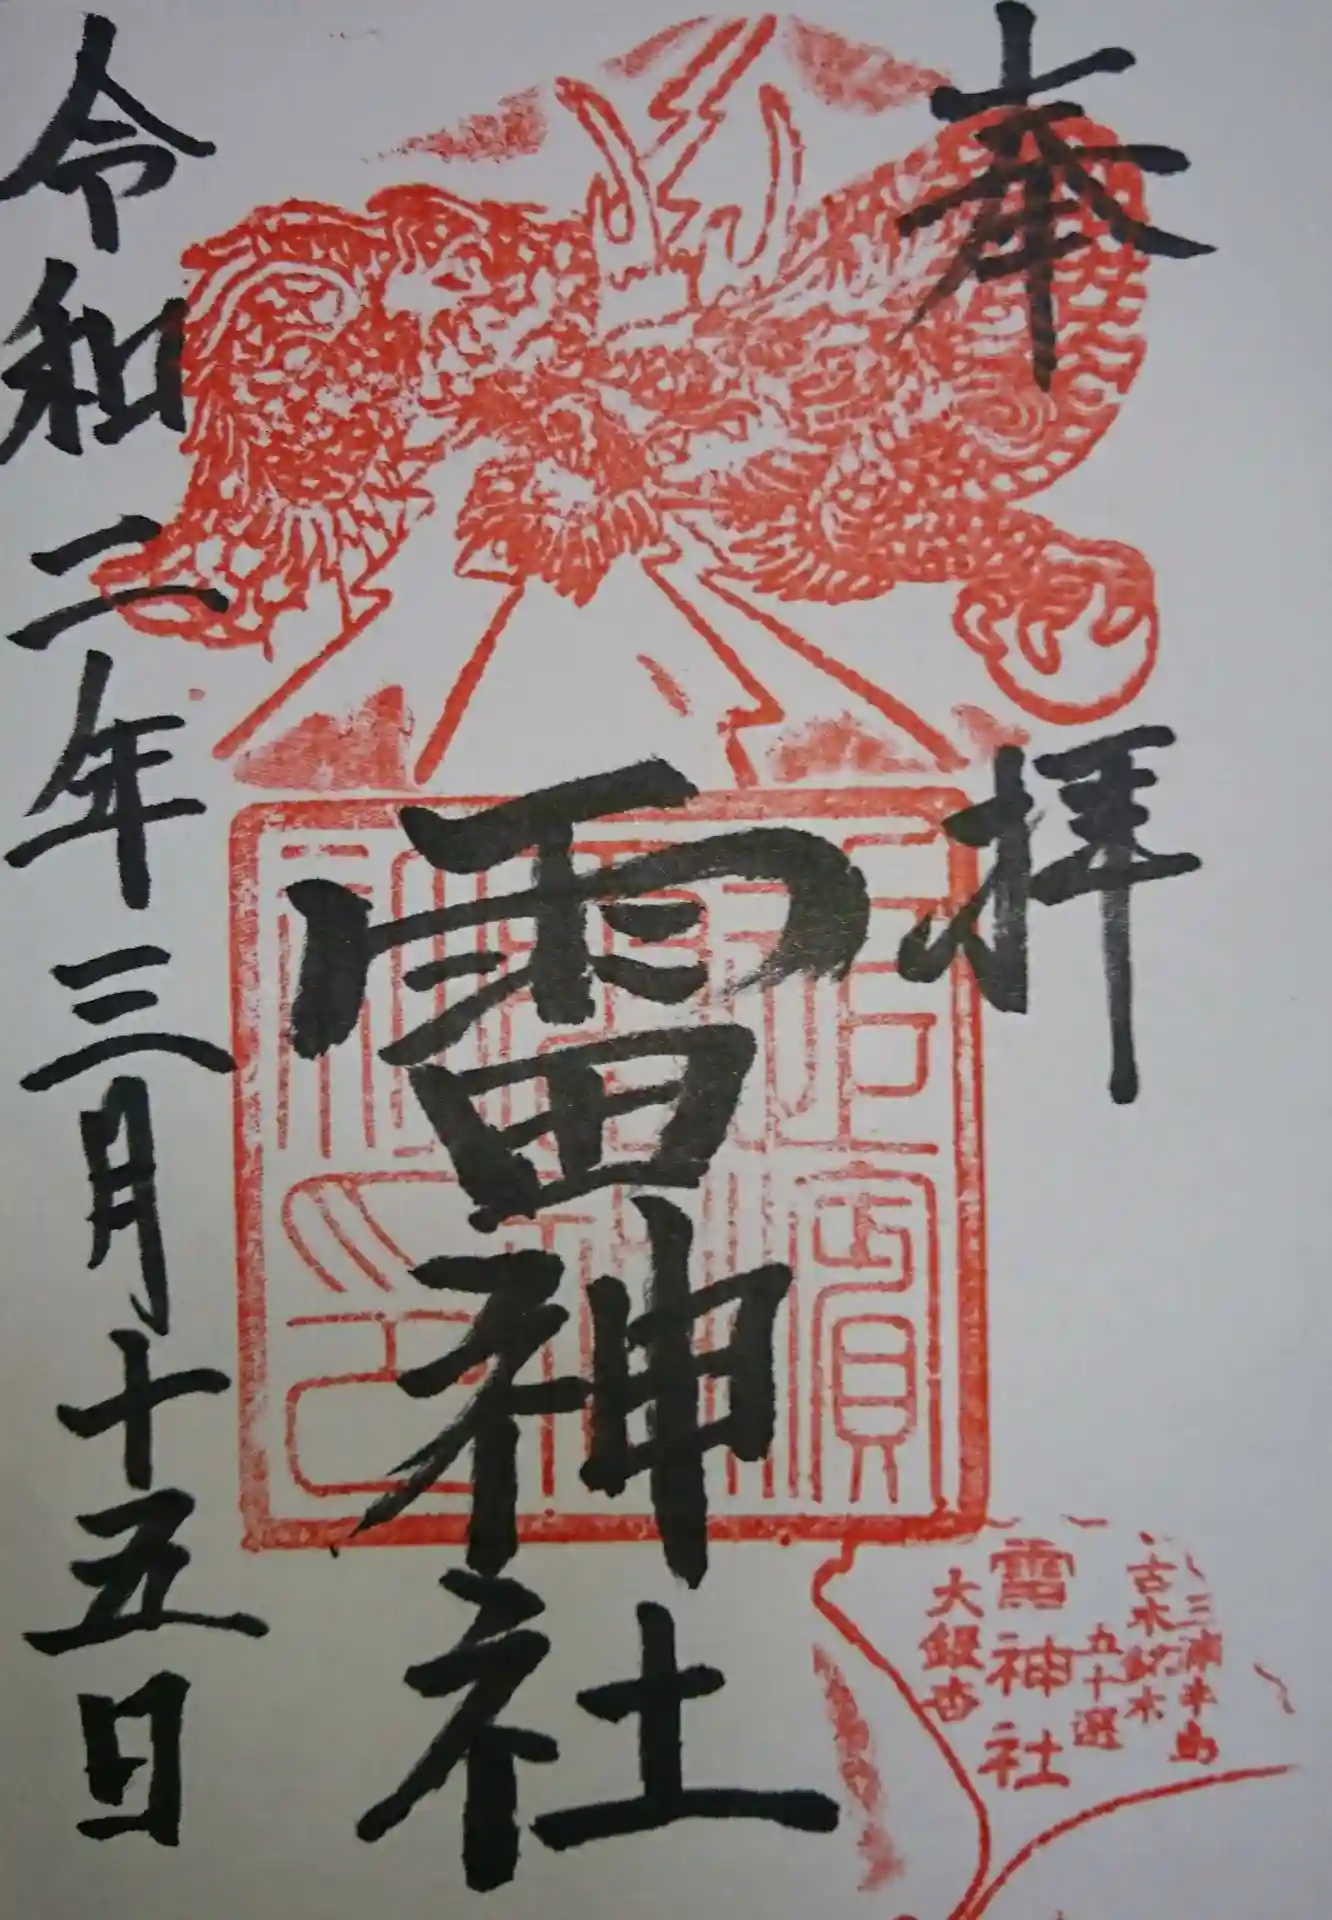 奉拝
雷神社
令和二年三月十五日
三浦半島
古木銘木
五十選
雷神社
大銀杏